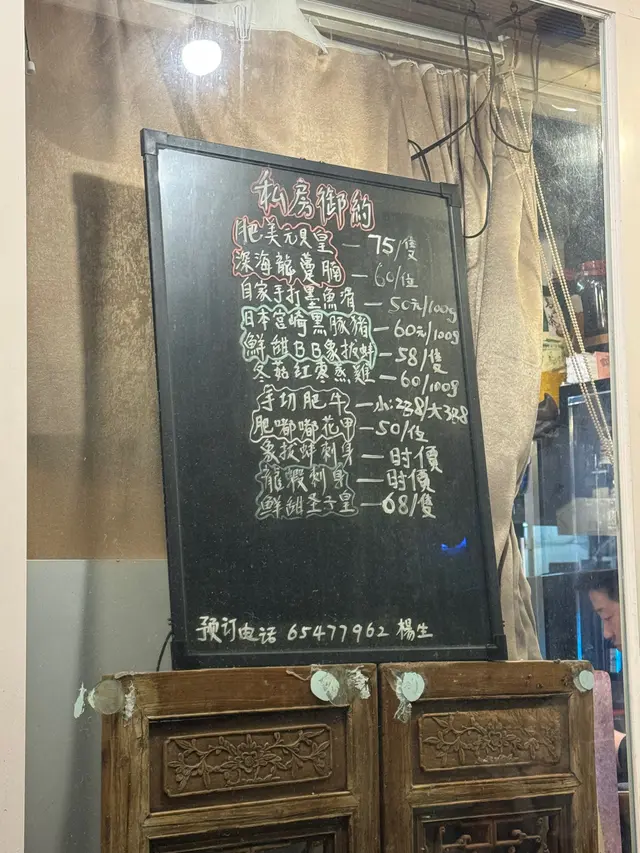 私房御約
肥美元貝皇 — 75/隻
深海龍躉腩 — 60/位
自家手打墨魚滑 — 50元/100g
日本宮崎黑豚猪 — 60元/100g
鮮甜BB象拔蚌 — 58/隻
冬菇紅枣蒸雞 — 60/100g
手切肥牛 — 小:228/大348
肥嘟嘟花甲 — 50/位
象拔蚌刺身 — 时價
龍蝦刺身 — 时價
鮮甜圣子皇 — 68/隻
预订电话 65477962 楊生